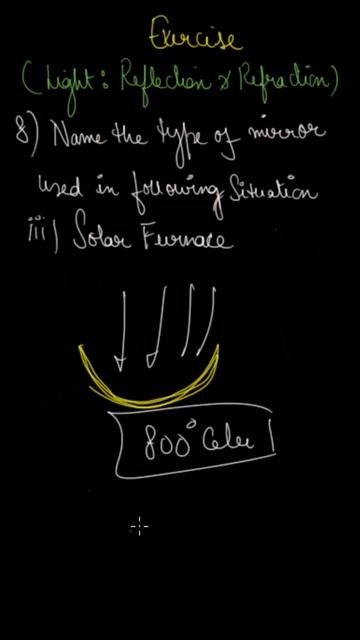 Exercise
(Light: Reflection & Refraction)
8) Name the type of mirror
used in following Situation
iii) Solar Furnace
800°